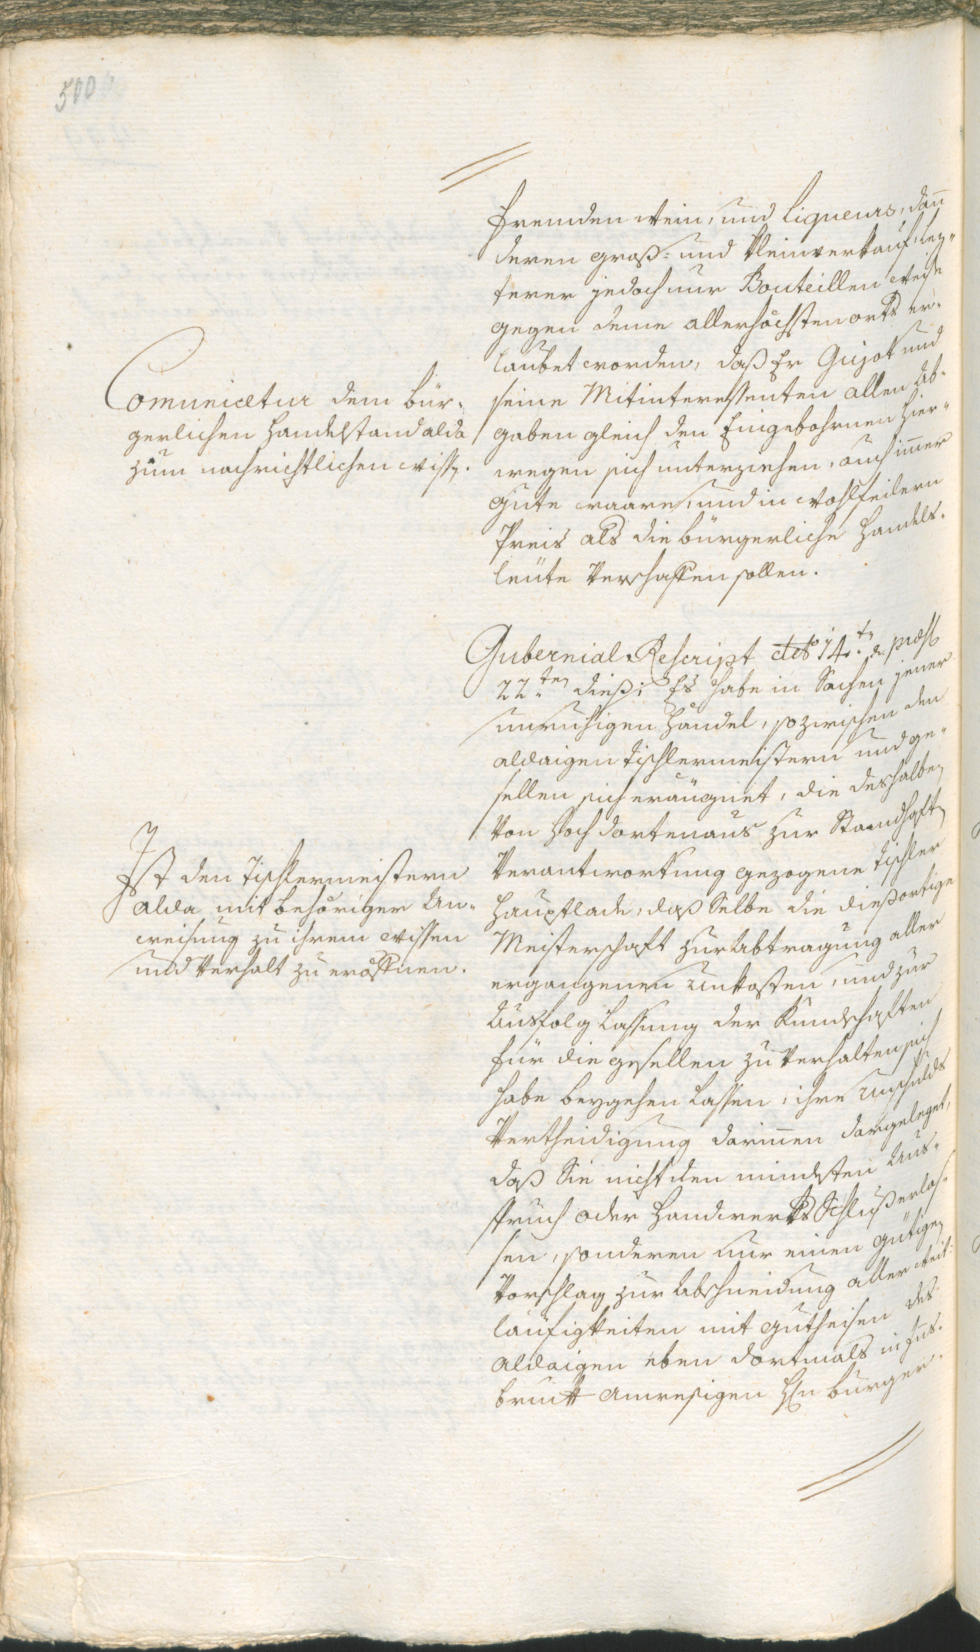 500
fremden Wein, und Liqueurs, dan̄
deren groß- und kleinverkauf, lez-
terer jedoch nur Bouteillen weise
gegen deme allerhöchsten orts er-
laubet worden, daß Er Gujot und
seine Mitinteressenten allen Ab-
gaben gleich den Eingebohrnen hier-
wegen sich unterziehen, auch im̄er
gute waare, und in wohlfeilern
Preis als die bürgerliche Handels-
leüte verschaffen sollen.
Comunicetur dem bür-
gerlichen Handelstand alda
zum nachrichtlichen wissen.
Gubernial Rescript dto 14ten & præs
22ten dieß: Es habe in Sachen jener
unruhigen Händel, so zwischen den
aldaigen Tischlermeistern und ge-
sellen sich eräugnet, die deshalben
von hoch dortenaus zur Standhaften
Verantwortung gezogene Tischler
Hauptlade, daß Selbe die dießortige
Meisterschaft zur Abtragung aller
ergangenen Unkosten, und zur
Ausfolg Lassung der Kundschaften
für die gesellen zu verhalten sich
habe beygehen lassen, ihre Unschulds
Vertheidigung darinnen dargeleget,
daß Sie nicht den mindesten Aus-
spruch oder Handwerks Schluß erlas-
sen, sonderen nur einen gütigen
Vorschlag zur Abschneidung aller weit-
laüfigkeiten mit gutheisen des
aldaigen eben dortmals in Ins-
bruck anwesigen Hn burger-
Ist den Tischlermeistern
alda mit behöriger An-
weisung zu ihrem wissen
und verhalt zu eröffnen.